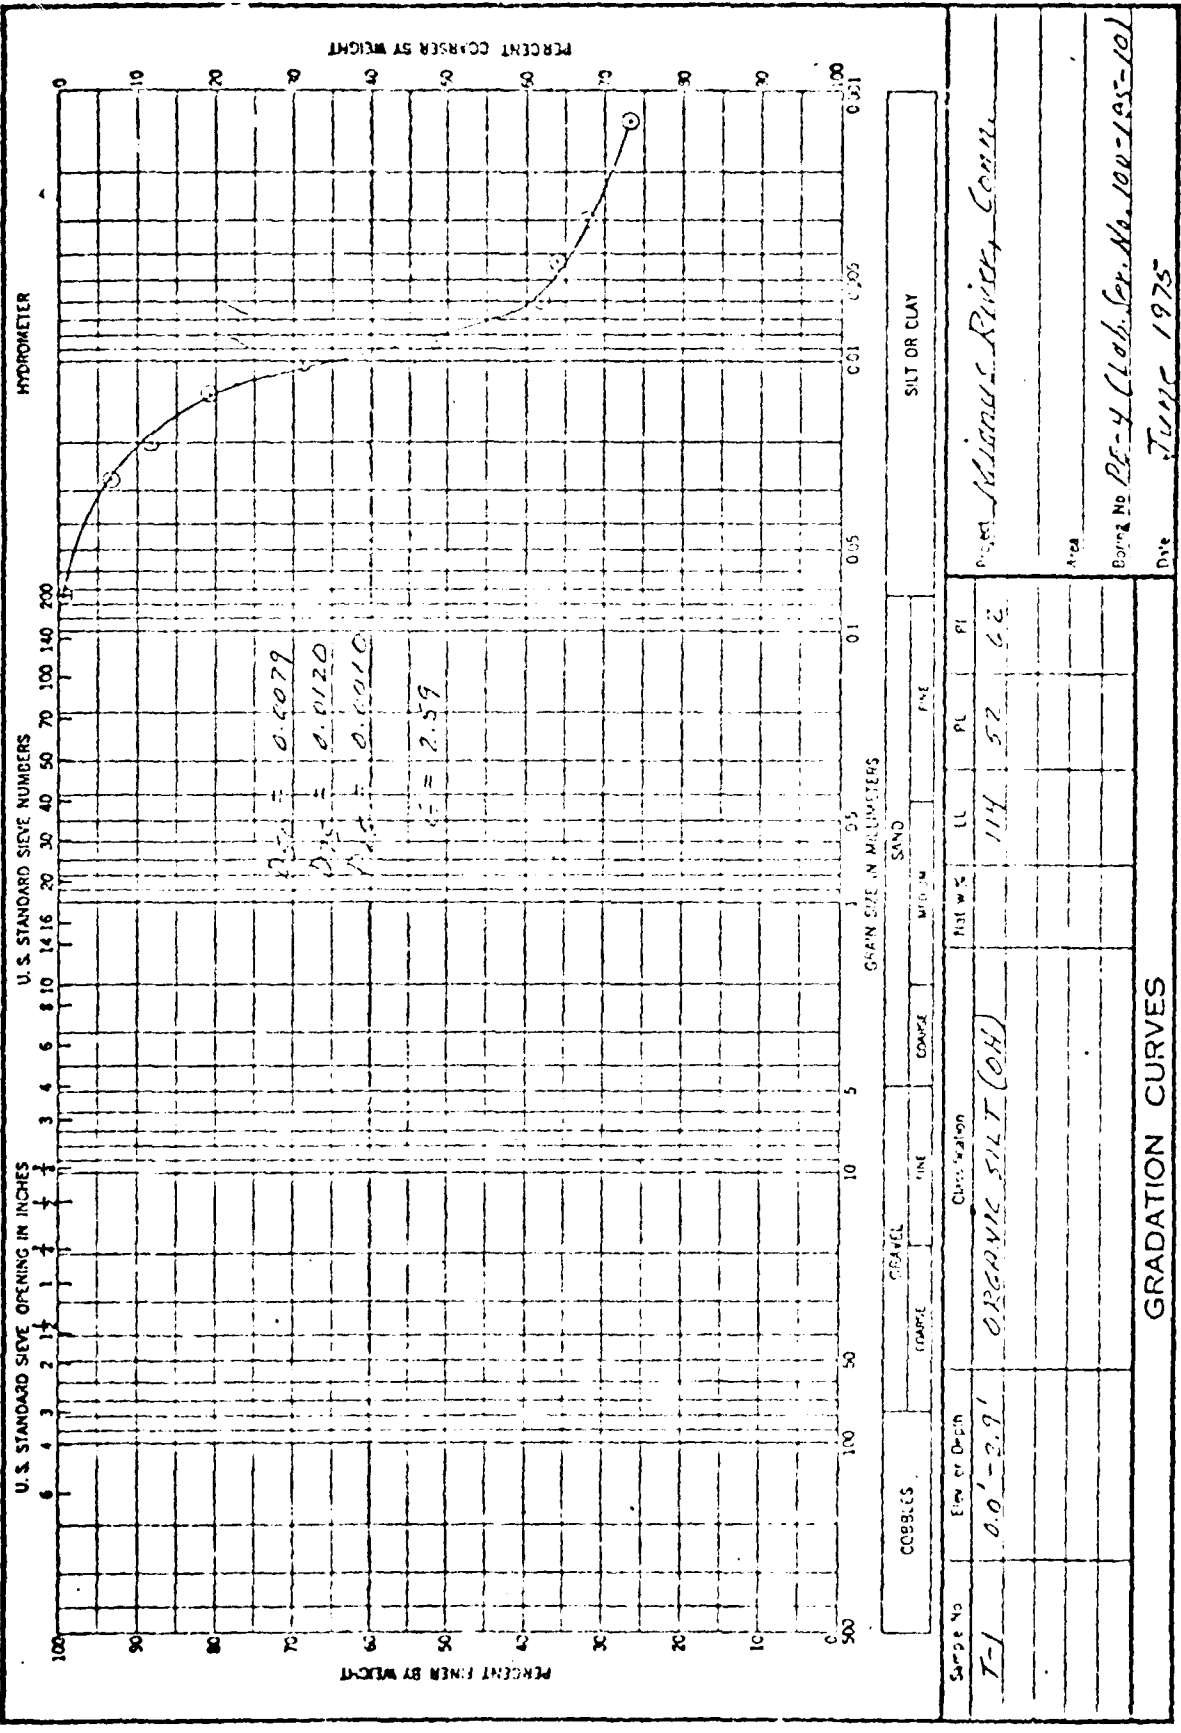 U.S. STANDARD SIEVE OPENING IN INCHES
U.S. STANDARD SIEVE NUMBERS
HYDROMETER
6 4 3 2 1½ 1 ¾ ½ ⅜ 3 4 6 8 10 14 16 20 30 40 50 70 100 140 200
PERCENT FINER BY WEIGHT
100
90
80
70
60
50
40
30
20
10
0
PERCENT COARSER BY WEIGHT
0
10
20
30
40
50
60
70
80
90
100
D50 = 0.0079
D75 = 0.0120
= 0.0010
G = 2.59
500 100 50 10 5 1 0.5 0.1 0.05 0.01 0.005 0.001
GRAIN SIZE IN MILLIMETERS
COBBLES
GRAVEL
SAND
SILT OR CLAY
COARSE
FINE
COARSE
MEDIUM
FINE
Sample No
Elev or Depth
Classification
Nat w %
LL
PL
PI
T-1
ORGANIC SILT (OH)
114
52
62
Project Mianus River, Conn.
Area
Boring No PE-4 (Lab. Ser. No. 100-195-101
Date June 1975
GRADATION CURVES